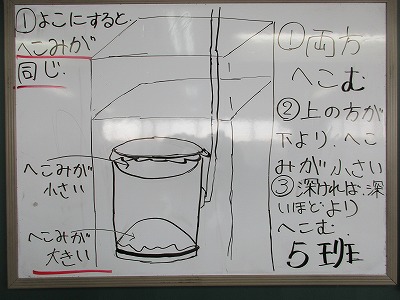 ①よこにすると、
へこみが
同じ.
へこみが
小さい
へこみが
大きい
①両方
へこむ
②上の方が
下より、へこ
みが小さい
③深ければ、深
いほど より
へこむ.
5班